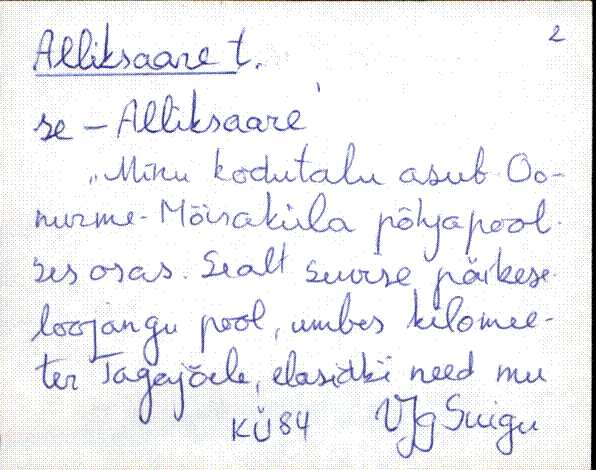 2
Alliksaare t.
se – Alliksaare'
„Minu kodutalu asub Oo-
nurme-Mõisaküla põhjapool-
ses osas. Sealt suvise päikese
loojangu pool, umbes kilomee-
ter Tagajõele, elasidki need mu
KÜ 84 VJg Suigu